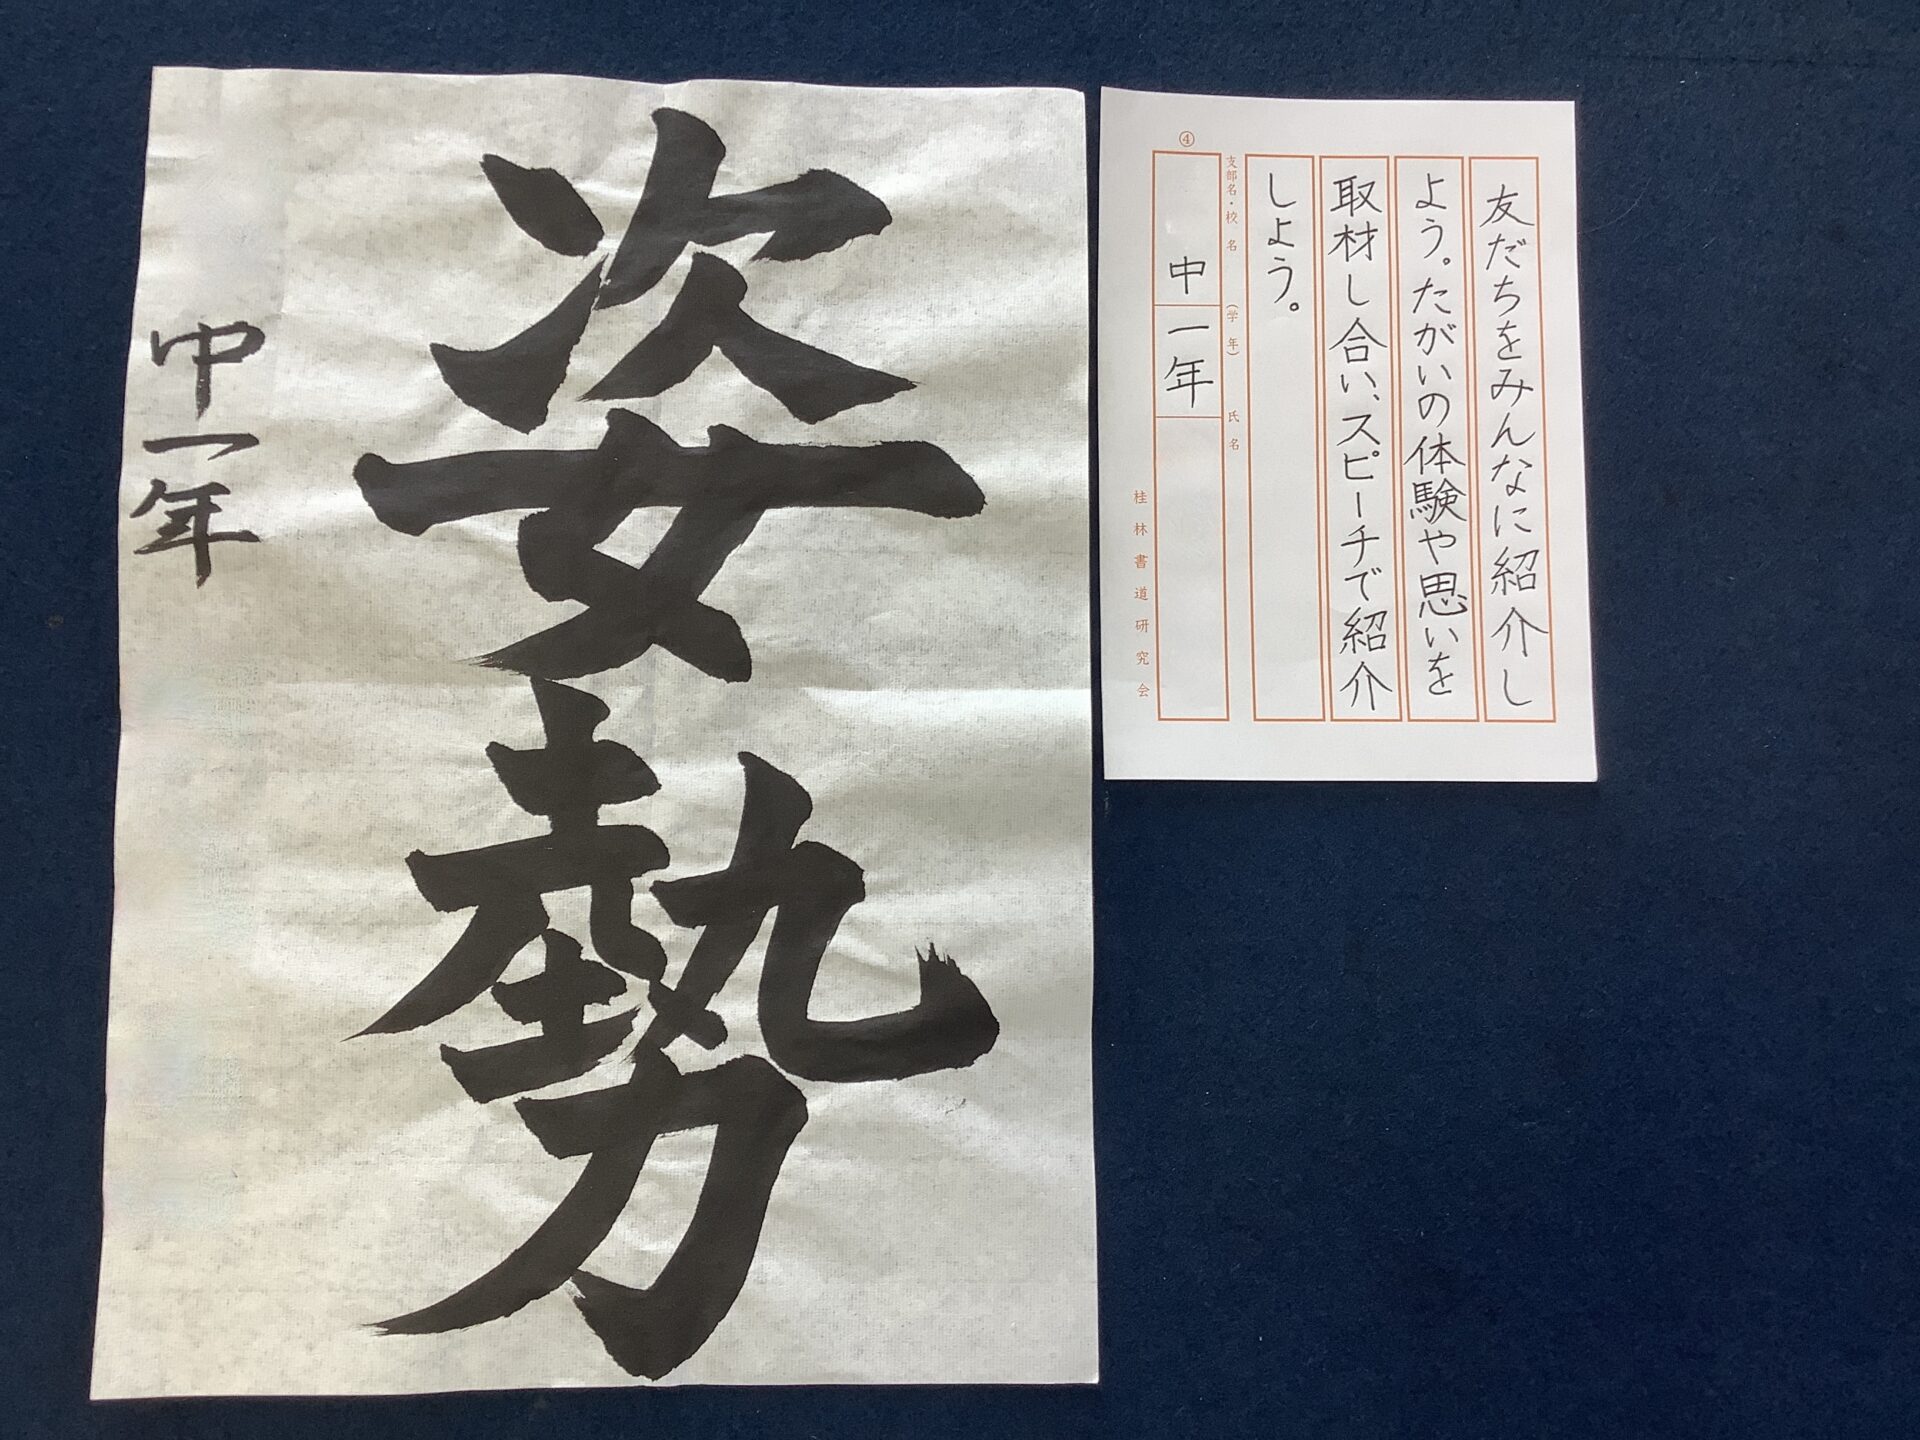 姿勢
中一年
友だちをみんなに紹介し
よう。たがいの体験や思いを
取材し合い、スピーチで紹介
しよう。
支部名・校名 (学年) 氏名
④
中 一年
桂林書道研究会